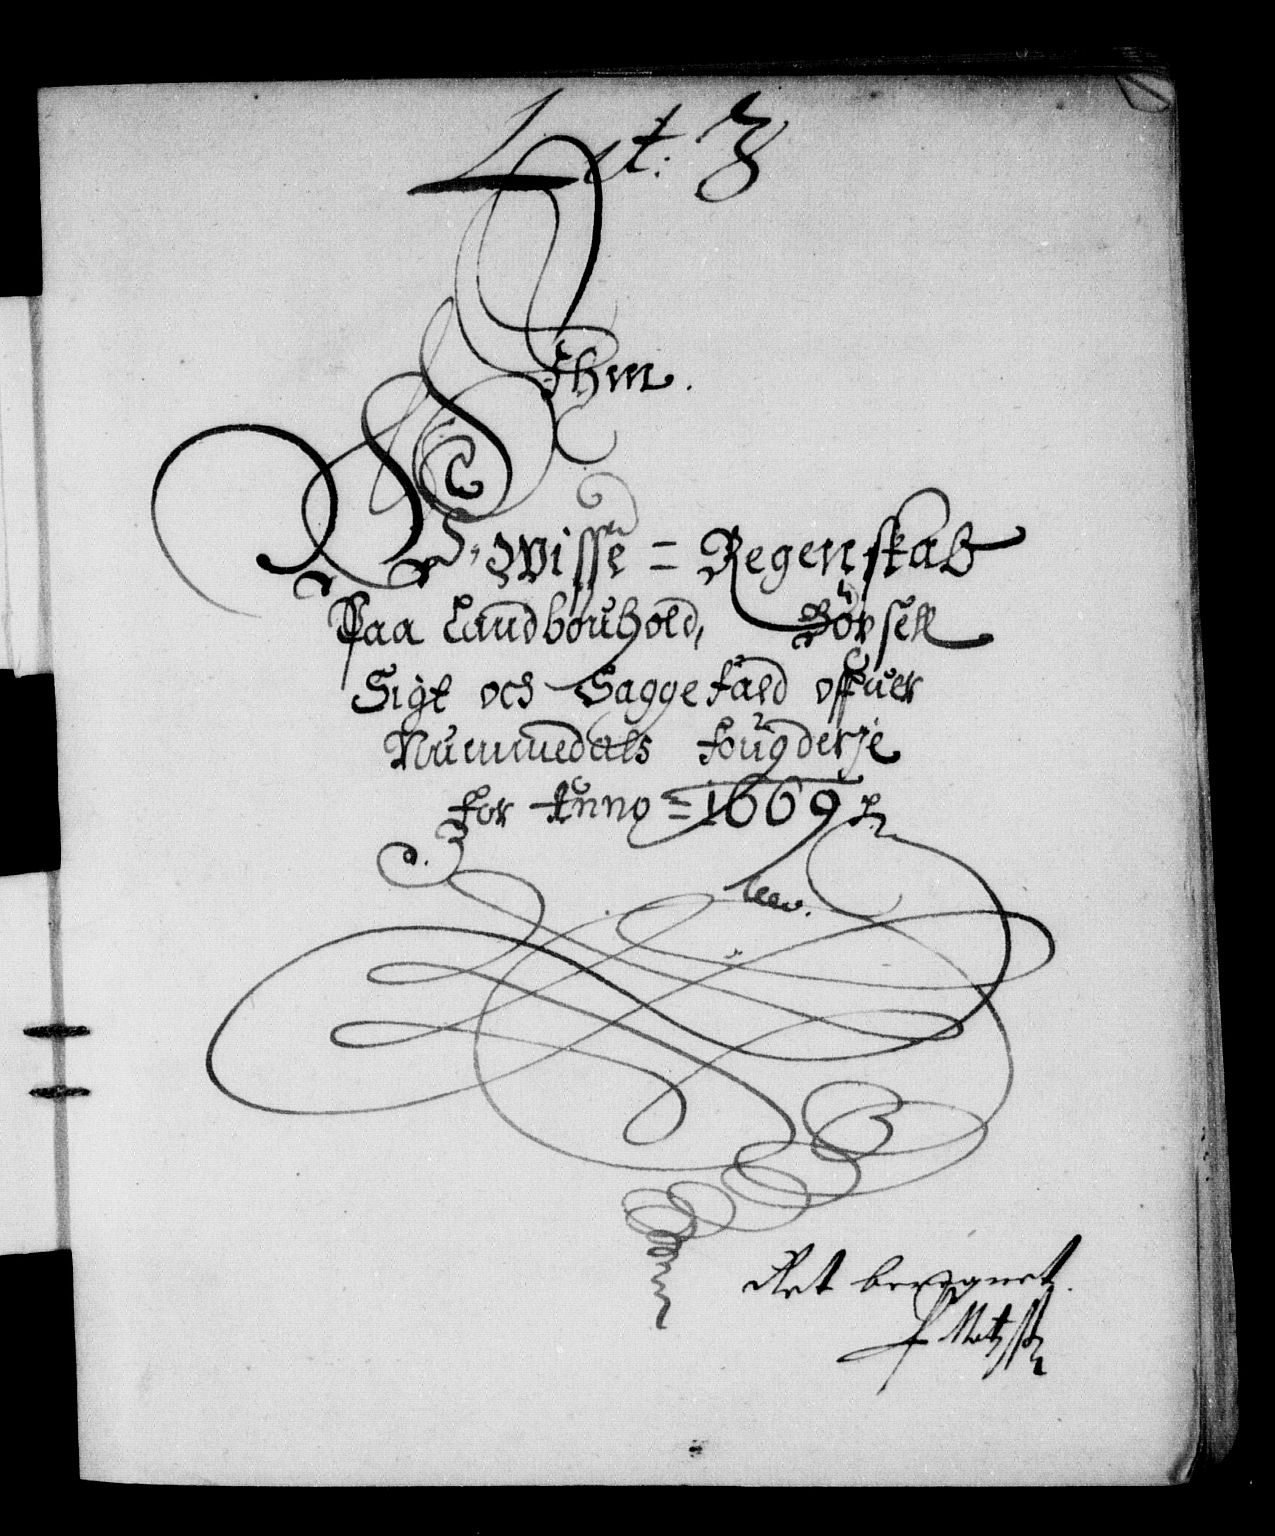 Lit: B
Ithm.
U-Wisse = Regenskab
Paa Landbouhold, Böxsell
Sigt och Saggefald offuer
Nummedals fougderje
for Anno = 1669 &
Ret beregnet.